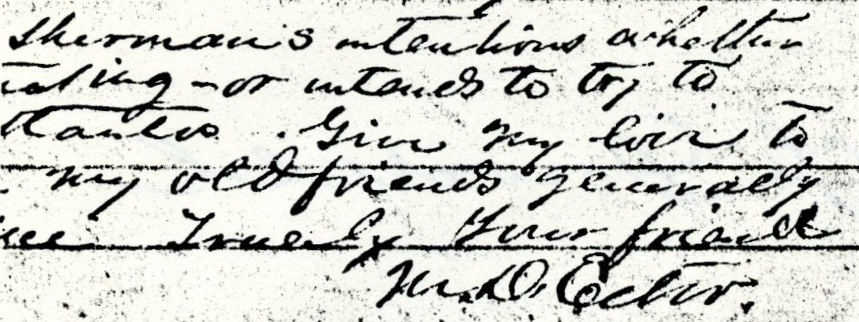 Sherman's intentions whether
-or intends to try to
. Give my love to
my old friends generally
Truely Your friend
M.D. Ector.